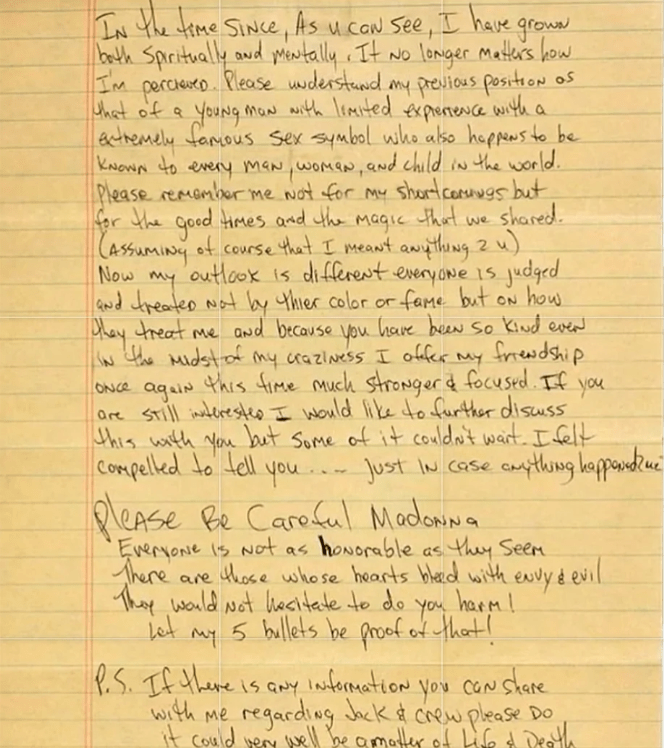 In the time since, As u can see, I have grown
both spiritually and mentally. It no longer matters how
I'm percieved. Please understand my previous position as
that of a young man with limited experience with a
extremely famous sex symbol who also happens to be
known to every man, woman, and child in the world.
Please remember me not for my shortcomings but
for the good times and the magic that we shared.
(Assuming of course that I meant anything 2 u)
Now my outlook is different everyone is judged
and treated not by thier color or fame but on how
they treat me and because you have been so kind even
in the midst of my craziness I offer my friendship
once again this time much stronger & focused. If you
are still interested I would like to further discuss
this with you but some of it couldn't wait. I felt
compelled to tell you .... just in case anything happened 2 me
Please Be Careful Madonna
Everyone is not as honorable as they seem
There are those whose hearts bleed with envy & evil
They would not hesitate to do you harm!
Let my 5 bullets be proof of that!
P.S. If there is any information you can share
with me regarding Jack & crew please Do
it could very well be a matter of Life & Death